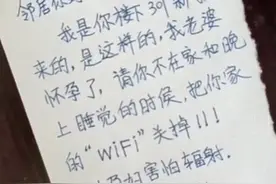 邻居你
我是你楼下301新
来的,是这样的,我老婆
怀孕了,请你不在家和晚
上睡觉的时候,把你家
的“WiFi”关掉!!!
孕妇害怕辐射.